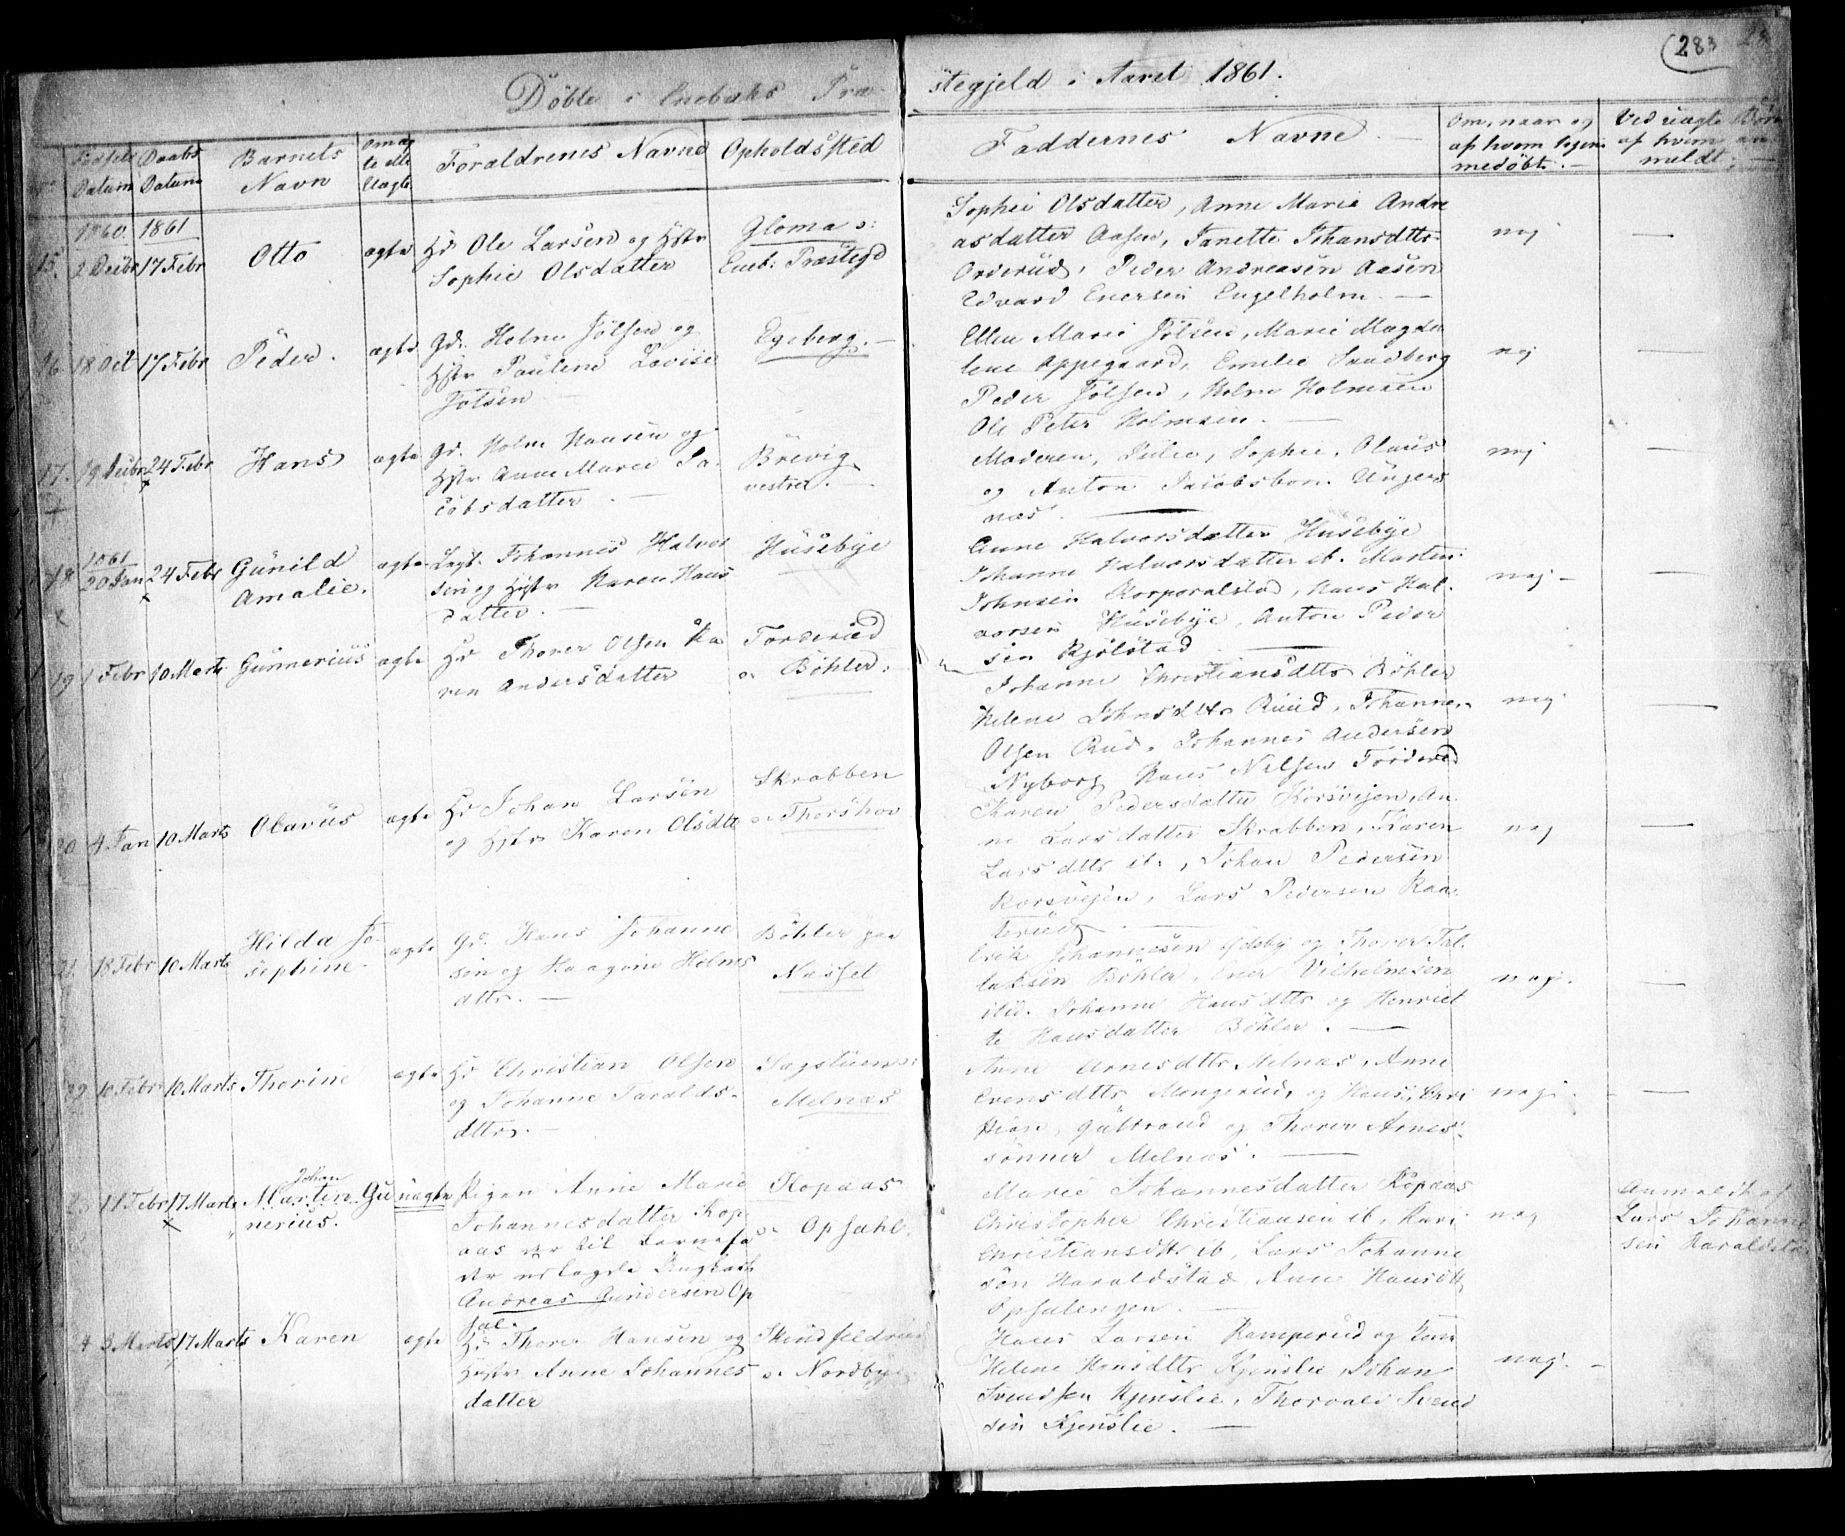 283
Döbte i Enebaks Præ-
stegjeld i Aaret 1861.
Fødsels Datum
Daabs Datum
Barnets Navn
Om ægte eller Uægte
Forældrenes Navne
Opholdssted
Faddernes Navne
Om, naar og af hvem hjemmedøbt.
Ved uægte Børn af hvem anmeldt.
1860 1861
15. 2 Decbr 17 Febr
Otto
ægte
Hr Ole Larsen og Hstr
Sophie Olsdatter
Gloma o:
Eneb: Præstegd
Sophie Olsdatter, Anne Marie Andre
asdatter Aasen, Janette Johansdttr
Orderud, Peder Andreasen Aasen
Edvard Enersen Engelholm. —
nej —
16 18 Oct 17 Febr
Peder.
ægte
Gd. Holm Jölsen og
Hstr Pauline Lovise
Jölsen
Egeberg. —
Ellen Marie Jölsen, Marie Magda
lene Oppegaard, Emilie Sandberg
Peder Jölsen, Holm Holmsen
Ole Peter Holmsen. —
nej —
17. 19 Decbr 24 Febr
Hans
ægte
Gd. Holm Hansen og
Hstr Anne Marie Ja-
cobsdatter. —
Brevig
vestre. —
Moderen, Julie, Sophie, Olaus
og Anton Jacobsborn Ungers
næs. —
nej —
1861
18. 20 Jan 24 Febr
Gunild
Amalie.
ægte
Johannes Halvor
sen og Hstr Karen Hans
datter. —
Husebye
Anne Halvorsdatter Husebye
Johanne Halvorsdatter ib. Marten
Johnsen Korporalstad, Hans Hal-
vorsen Husebye, Anton Peder
sen Kjölstad —
nej —
19 1 Febr 10 Marts
Gunnerius
ægte
Hr Thorer Olsen Ka
ren Andersdatter
Forderud
o: Böhler.
Johanne Christiansdttr Böhler
Helene Johnsdttr Ruud, Johannes
Olsen Rud, Johannes Andersen
Nyborg Hans Nilsen Forderud
nej —
20 4 Jan 10 Marts
Olavus
ægte
Hr Johan Larsen
og Hstr Karen Olsdtt
Skrabben
o: Thorshov
Karen Pedersdatter Korsvejen, An-
ne Larsdatter Skrabben, Karen
Larsdttr ib., Johan Pedersen
Korsvejen, Lars Pedersen Raa-
kerud —
nej —
21. 18 Febr 10 Marts
Hilda Jo-
sephine.
ægte
Gd. Hans Johanne
sen og Haagine Holms
dttr. —
Böhler paa
Næsset
Erik Johannesen Ödsby og Thorer Tol
laksen Böhler, Ener Vilhelmsen
ibid. Johanne Hansdttr og Henriet
te Hansdatter Böhler. —
nej. —
22. 10 Febr 10 Marts
Thorine
ægte
Hr Christian Olsen
og Johanne Taralds-
dttr. —
Sagstuen o:
Melnæs
Anne Arnesdttr Melnæs, Anne
Evensdttr Mangerud, og Hans, Chri
stian, Gulbrand og Thorer Arnes-
sønner Melnæs. —
nej. —
23 11 Febr 17 Marts
Johan
Marten Gu
nerius.
uægte
Pigen Anne Marie
Johannesdatter Kop-
aas der til Barnefa
der udlagde Ungkarl
Andreas Gundersen Op
sal.
Kopaas
o: Opsahl.
Marie Johannesdatter Kopaas
Christopher Christiansen ib, Kari
Christiansdttr ib, Lars Johanne
sen Haraldstad, Anne Hansdtt
Opsalengen. —
nej
Anmeldt af
Lars Johanne
sen Haraldstad
24 3 Marts 17 Marts
Karen
ægte
Hr Thorer Hansen og
Hstr Anne Johannes
datter
Skindfeldrud
o: Nordbye
Hans Larsen Ramperud og Kone
Helene Hansdttr Kjenslie, Johan
Svendsen Kjenslie, Thorvald Svend
sen Kjenslie. —
nej. —